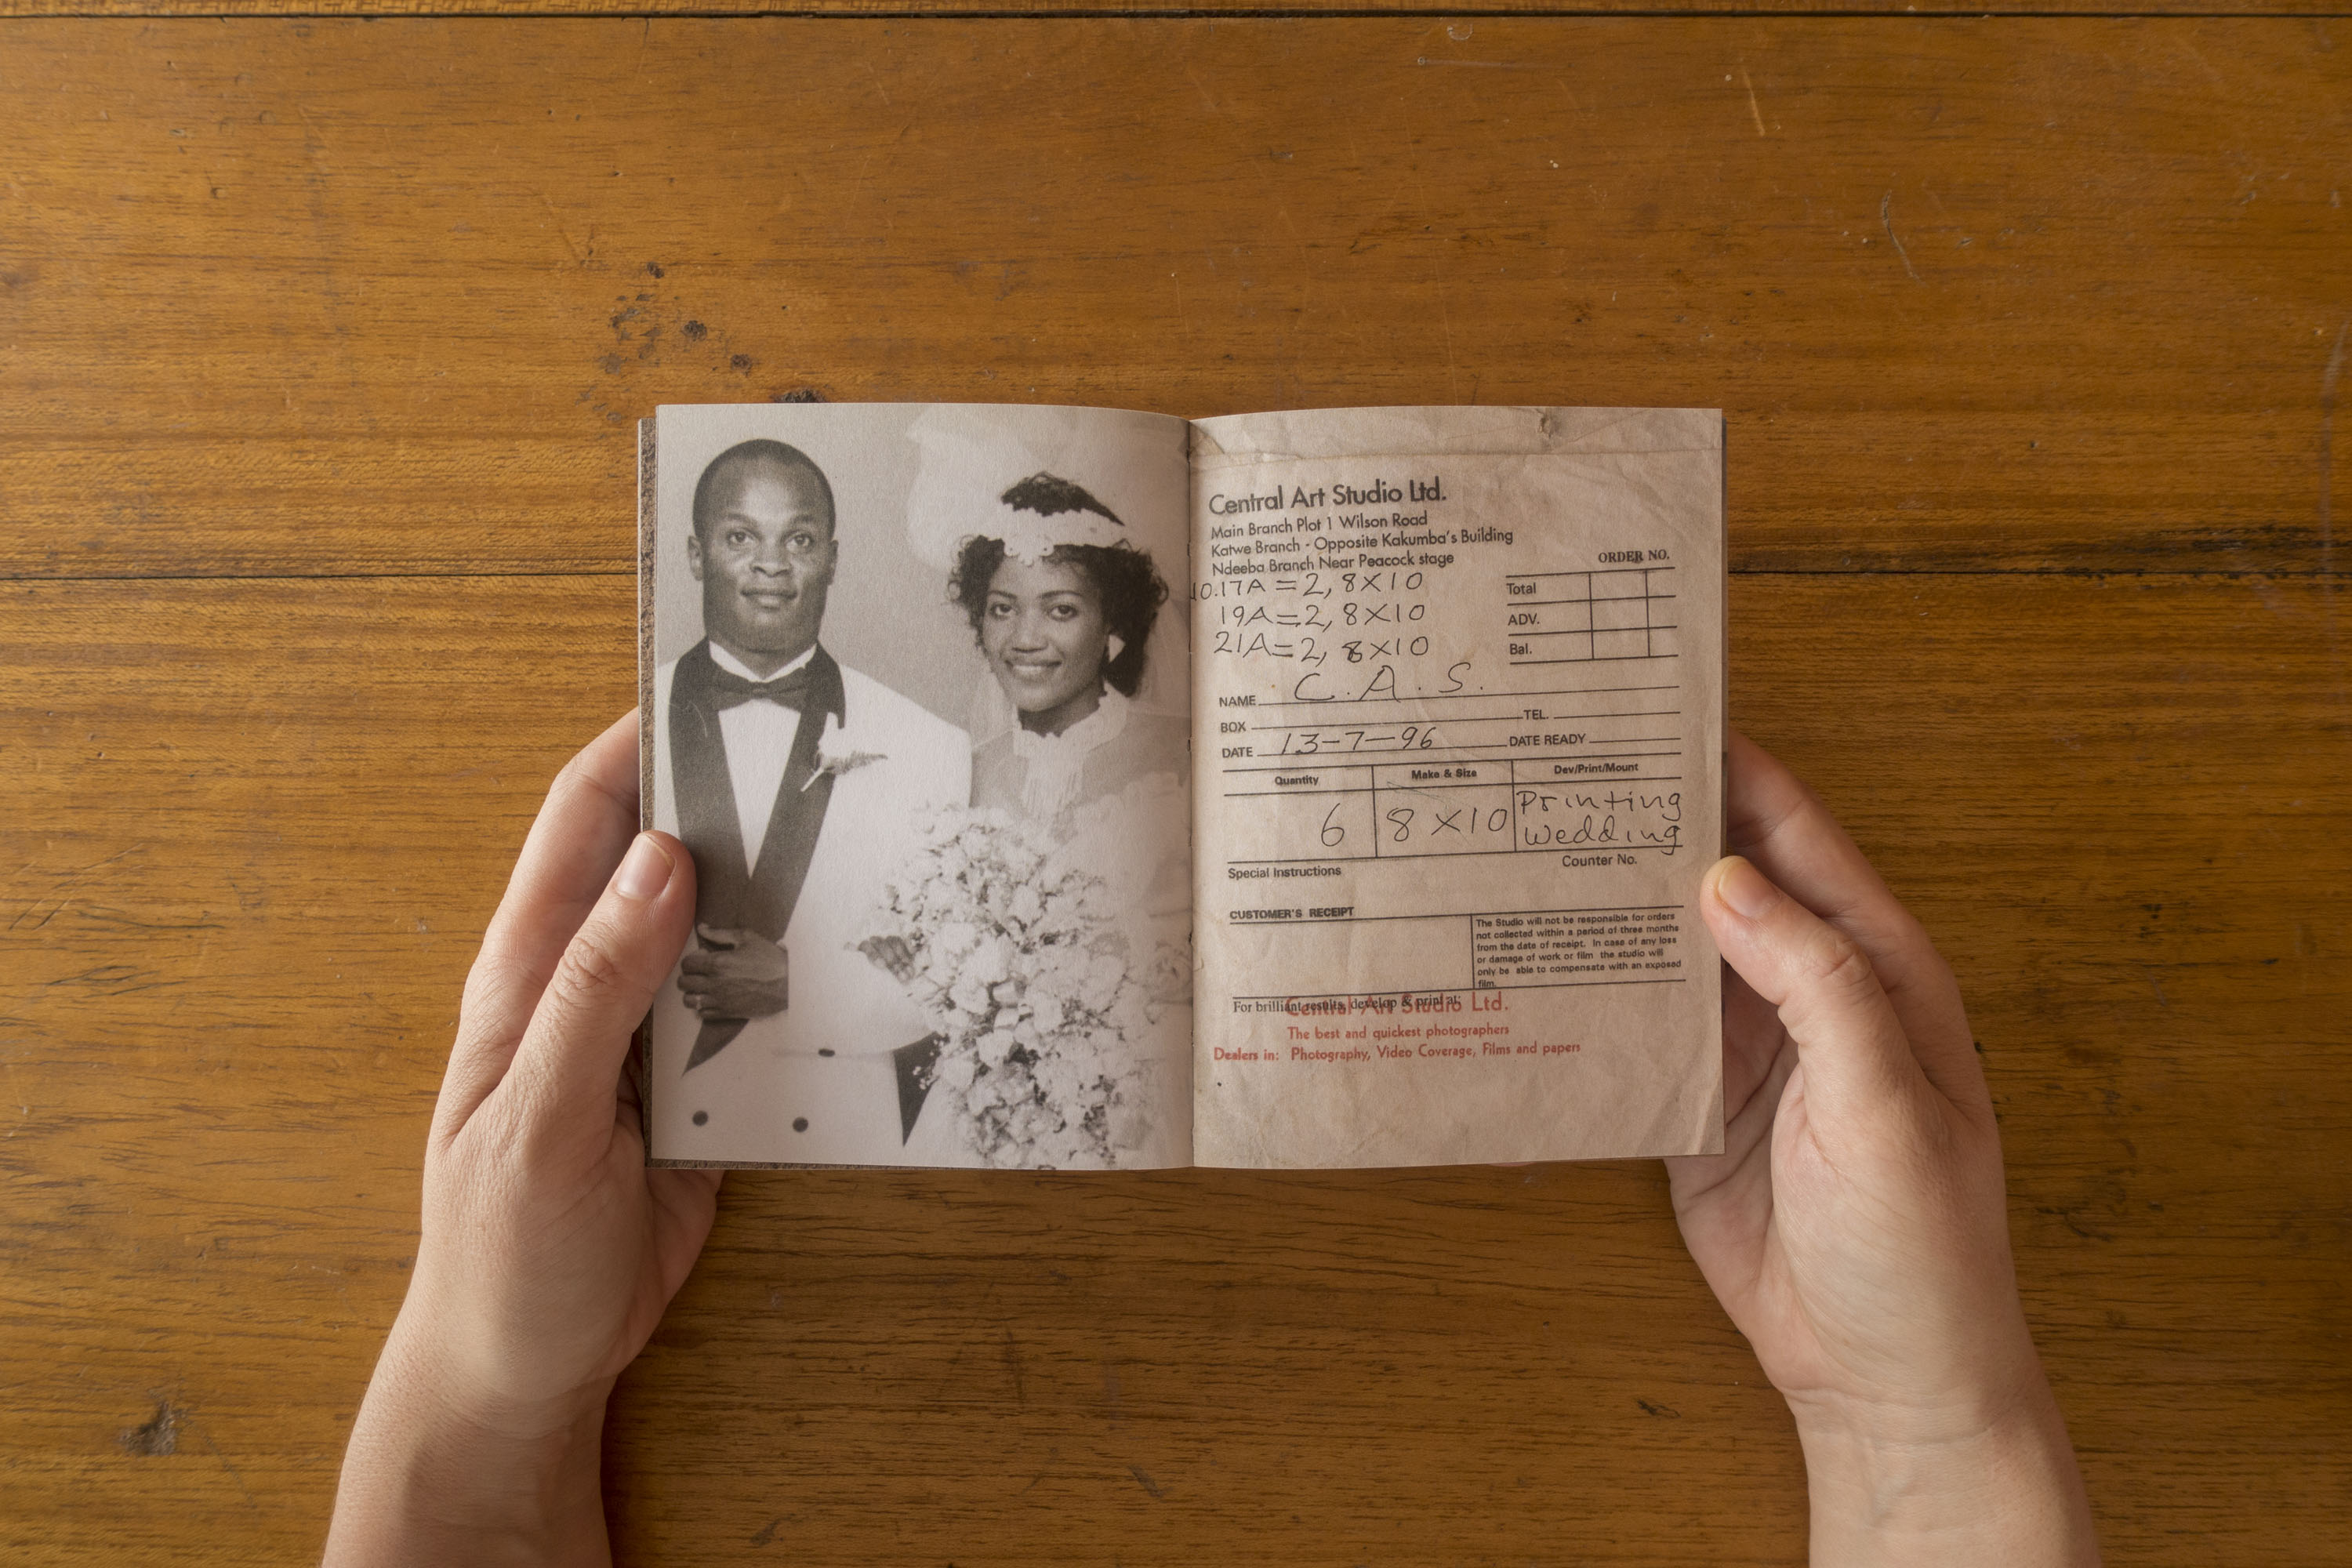 Central Art Studio Ltd.
Main Branch Plot 1 Wilson Road
Katwe Branch - Opposite Kakumba's Building
Ndeeba Branch Near Peacock stage
ORDER NO.
10.17A = 2, 8X10
19A = 2, 8X10
21A = 2, 8X10
Total
ADV.
Bal.
NAME C.A.S.
BOX TEL.
DATE 13-7-96 DATE READY
Quantity Make & Size Dev/Print/Mount
6 8X10 Printing
Wedding
Special Instructions Counter No.
CUSTOMER'S RECEIPT
The Studio will not be responsible for orders
not collected within a period of three months
from the date of receipt. In case of any loss
or damage of work or film the studio will
only be able to compensate with an exposed
film.
For brilliant results, develop & print at:
Central Art Studio Ltd.
The best and quickest photographers
Dealers in: Photography, Video Coverage, Films and papers